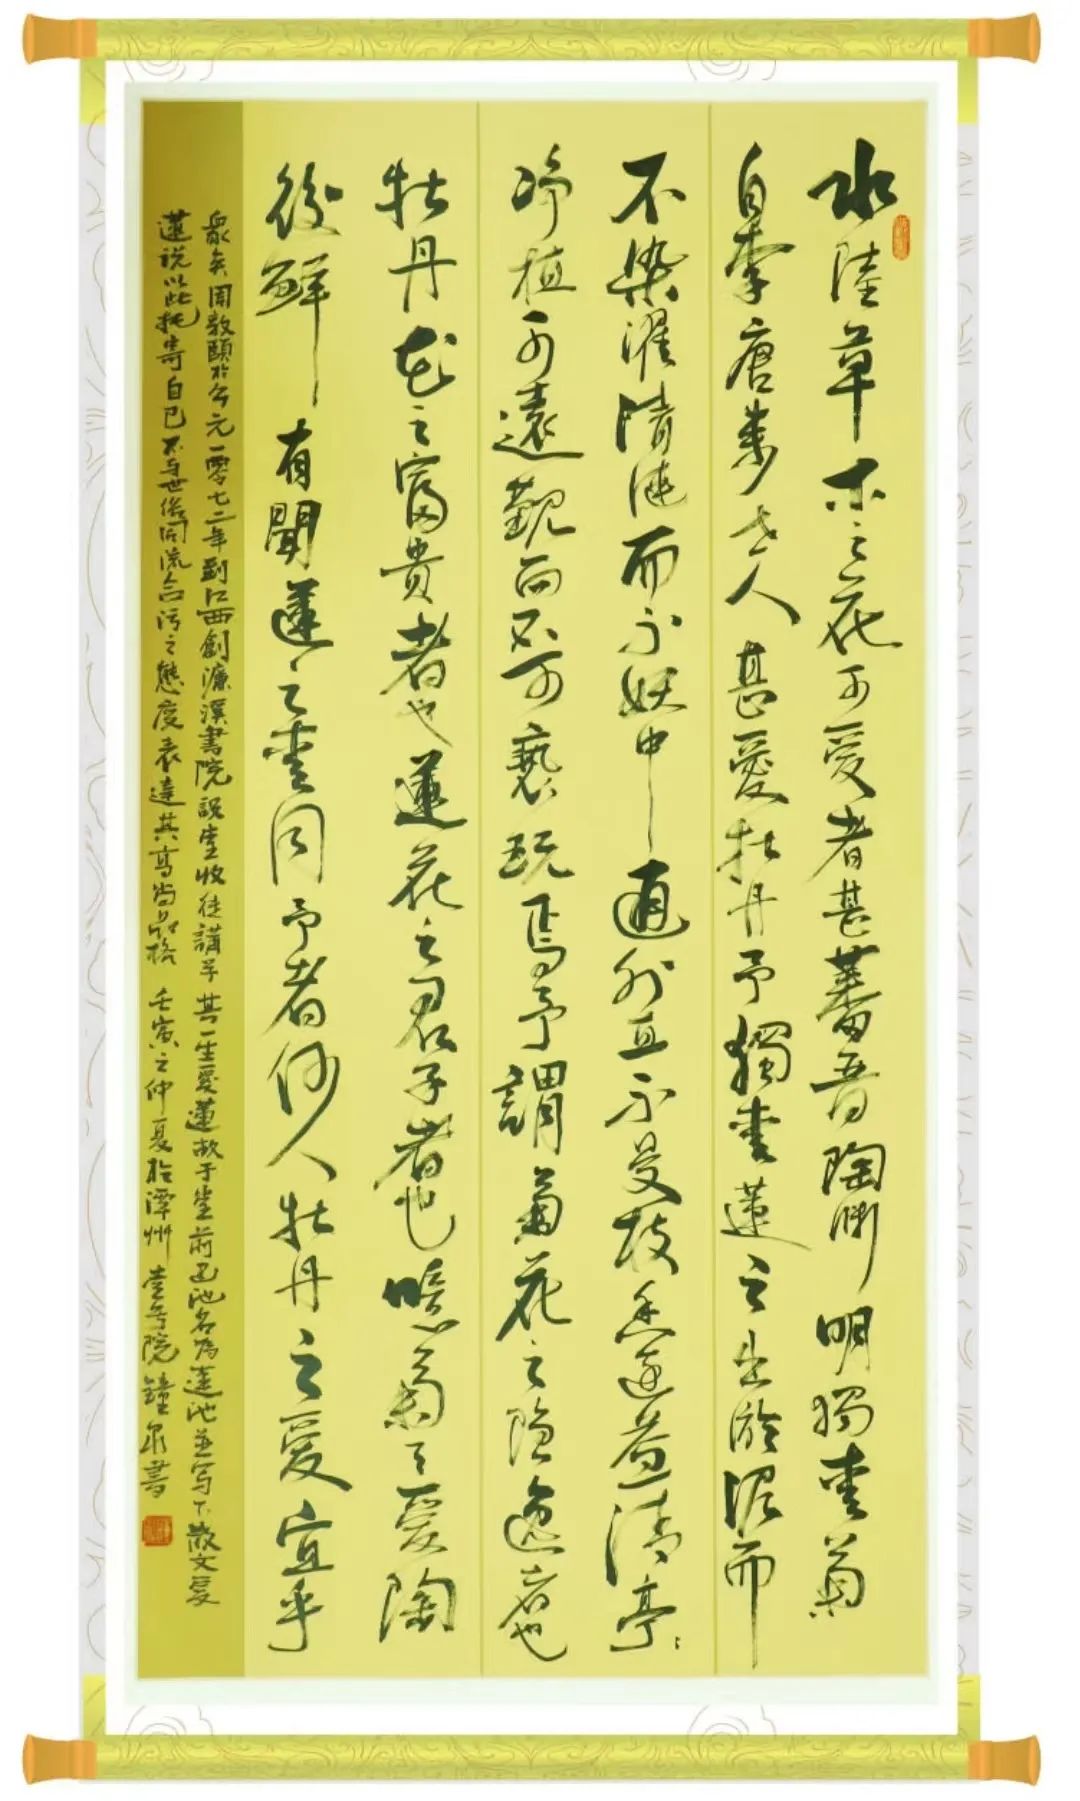 水陸草木之花可愛者甚蕃晋陶渊明獨爱菊
自李唐来世人甚愛牡丹予獨爱蓮之出淤泥而
不染濯清漣而不妖中通外直不蔓枝香远益清亭〻
净植可遠觀而不可褻玩焉予謂菊花之隐逸者也
牡丹花之富貴者也蓮花之君子者也噫菊之爱陶
後鮮有聞蓮之爱同予者何人牡丹之爱宜乎
衆矣周敦頤於公元一零七二年到江西創濂溪書院設堂收徒講学其一生爱蓮故于堂前建池名為蓮池並写下散文爱
蓮说以此托寄自己不与世俗同流合污之態度表達其高尚品格 壬寅之仲夏於潭州壹号院鐘泉書